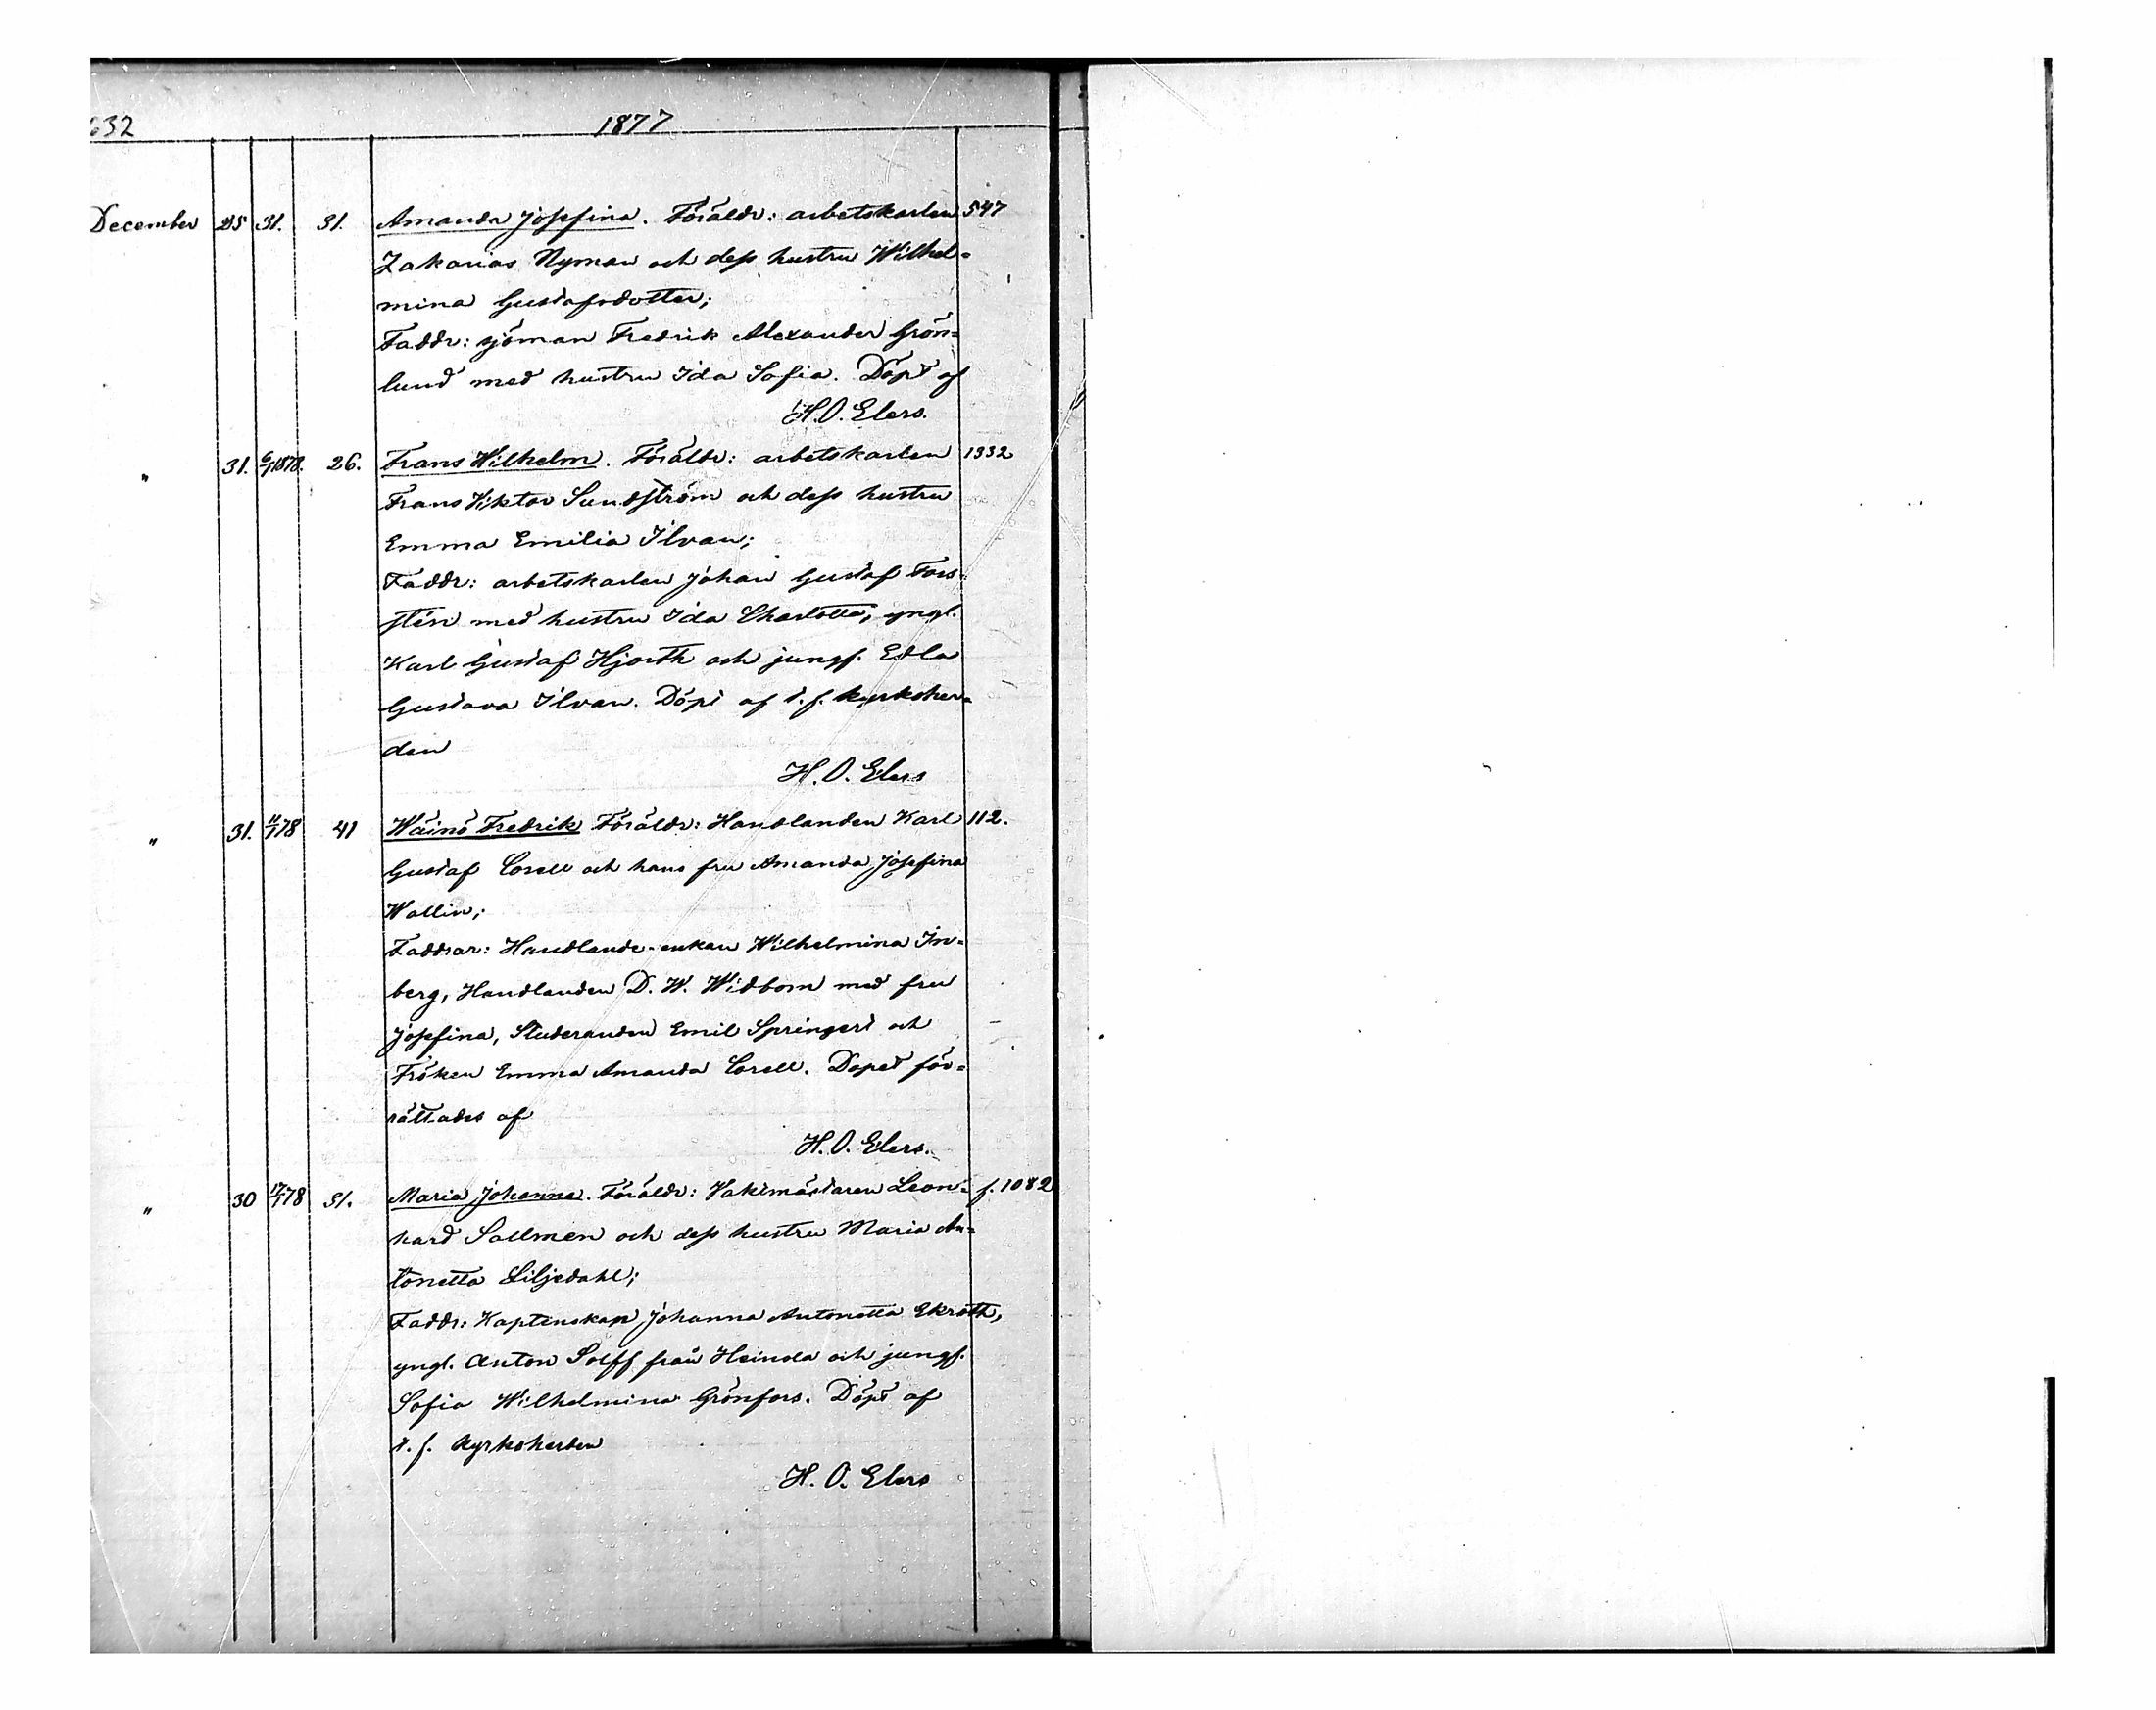 632 1877
December 25 31. 31. Amanda Josefina. Föräldr: arbetskarlen 547
Zakarias Nyman och dess hustru Wilhel=
mina Gustafsdotter;
Faddr: sjöman Fredrik Alexander Grön=
lund med hustru Ida Sofia. Döpt af
H. O. Elers.
" 31. 6/1 1878. 26. Frans Wilhelm. Föräldr: arbetskarlen 1332
Frans Viktor Sundström och dess hustru
Emma Emilia Ilvan;
Faddr: arbetskarlen Johan Gustaf Fors=
stén med hustru Ida Charlotta, yngl.
Karl Gustaf Hjorth och jungf. Edla
Gustava Ilvan. Döpt af t. f. kyrkoher=
den
H. O. Elers
" 31. 11/1 78 41 Wäinö Fredrik Föräldr: Handlanden Karl 112.
Gustaf Corell och hans fru Amanda Josefina
Wallin;
Faddrar: Handlande-enkan Wilhelmina In=
berg, Handlanden D. W. Widbom med fru
Josefina, Studeranden Emil Springert och
Fröken Emma Amanda Corell. Dopet för=
rättades af
H. O. Elers.
" 30 17/1 78 31. Maria Johanna. Föräldr: Vaktmästaren Leon= f. 1082
hard Sallmen och dess hustru Maria An=
tonetta Liljedahl;
Faddr: Kaptenskan Johanna Antonetta Ekroth,
yngl. Anton Solff från Heinola och jungf.
Sofia Wilhelmina Grönfors. Döpt af
t. f. Kyrkoherden
H. O. Elers